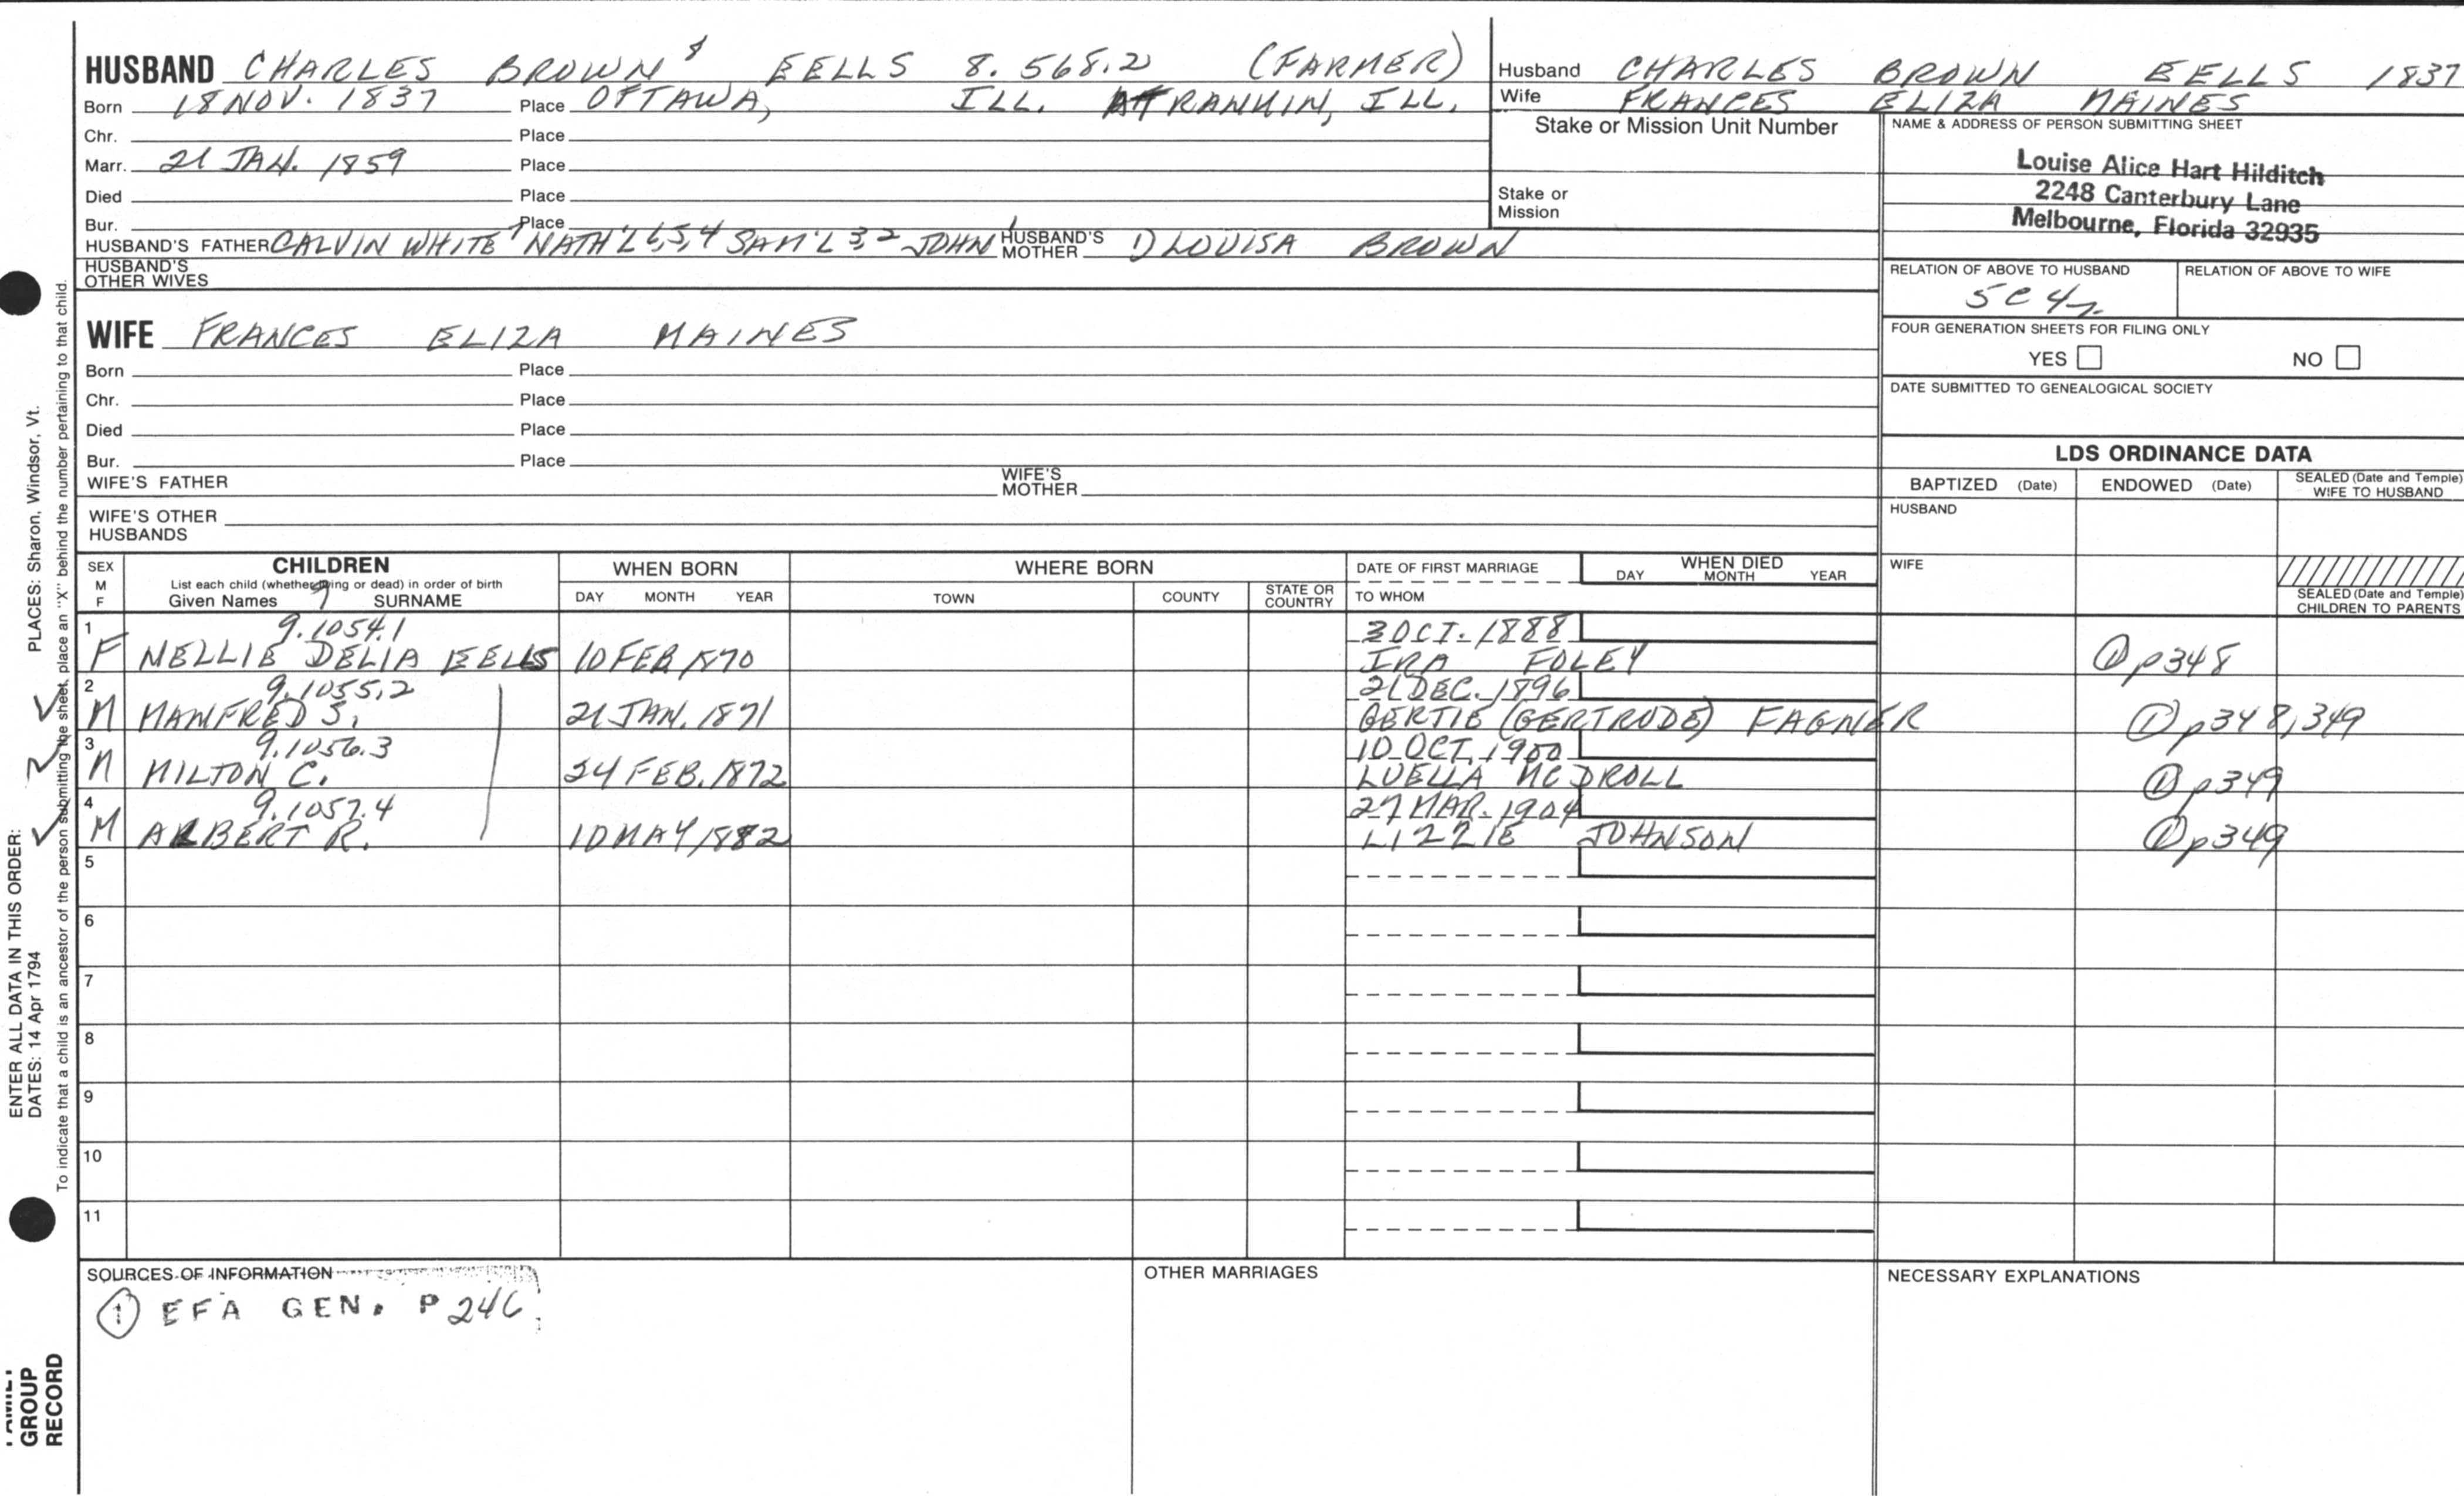 HUSBAND CHARLES BROWN 8 EELLS 8.568.2 (FARMER)
Born 18 NOV. 1837 Place OTTAWA, ILL. RANKIN, ILL.
Chr. Place
Marr. 21 JAN. 1859 Place
Died Place
Bur. Place
HUSBAND'S FATHER CALVIN WHITE 7 NATH'L 6,5,4 SAM'L 3,2 JOHN 1 HUSBAND'S MOTHER 1) LOUISA BROWN
HUSBAND'S OTHER WIVES
WIFE FRANCES ELIZA MAINES
Born Place
Chr. Place
Died Place
Bur. Place
WIFE'S FATHER WIFE'S MOTHER
WIFE'S OTHER HUSBANDS
Husband CHARLES BROWN EELLS 1837
Wife FRANCES ELIZA MAINES
Stake or Mission Unit Number
Stake or
Mission
NAME & ADDRESS OF PERSON SUBMITTING SHEET
Louise Alice Hart Hilditch
2248 Canterbury Lane
Melbourne, Florida 32935
RELATION OF ABOVE TO HUSBAND RELATION OF ABOVE TO WIFE
5C4r
FOUR GENERATION SHEETS FOR FILING ONLY
YES NO
DATE SUBMITTED TO GENEALOGICAL SOCIETY
LDS ORDINANCE DATA
BAPTIZED (Date) ENDOWED (Date) SEALED (Date and Temple) WIFE TO HUSBAND
HUSBAND
WIFE
SEALED (Date and Temple) CHILDREN TO PARENTS
SEX M F CHILDREN WHEN BORN WHERE BORN DATE OF FIRST MARRIAGE WHEN DIED
List each child (whether living or dead) in order of birth
Given Names 9 SURNAME DAY MONTH YEAR TOWN COUNTY STATE OR COUNTRY TO WHOM DAY MONTH YEAR
1 9.1054.1 3 OCT. 1888
F NELLIE DELIA EELLS 10 FEB 1870 IRA FOLEY ① p348
2 9.1055.2 21 DEC. 1896
M MANFRED S. 21 JAN. 1871 BERTIE (GERTRUDE) FAGNER ① p348,349
3 9.1056.3 10 OCT. 1900
M MILTON C. 24 FEB. 1872 LUELLA MCDROLL ① p349
4 9.1057.4 27 MAR. 1904
M ALBERT R. 10 MAY 1882 LIZZIE JOHNSON ① p349
5
6
7
8
9
10
11
SOURCES OF INFORMATION OTHER MARRIAGES NECESSARY EXPLANATIONS
① EFA GEN. P 246
ENTER ALL DATA IN THIS ORDER:
DATES: 14 Apr 1794 PLACES: Sharon, Windsor, Vt.
To indicate that a child is an ancestor of the person submitting the sheet, place an "X" behind the number pertaining to that child.
FAMILY
GROUP
RECORD